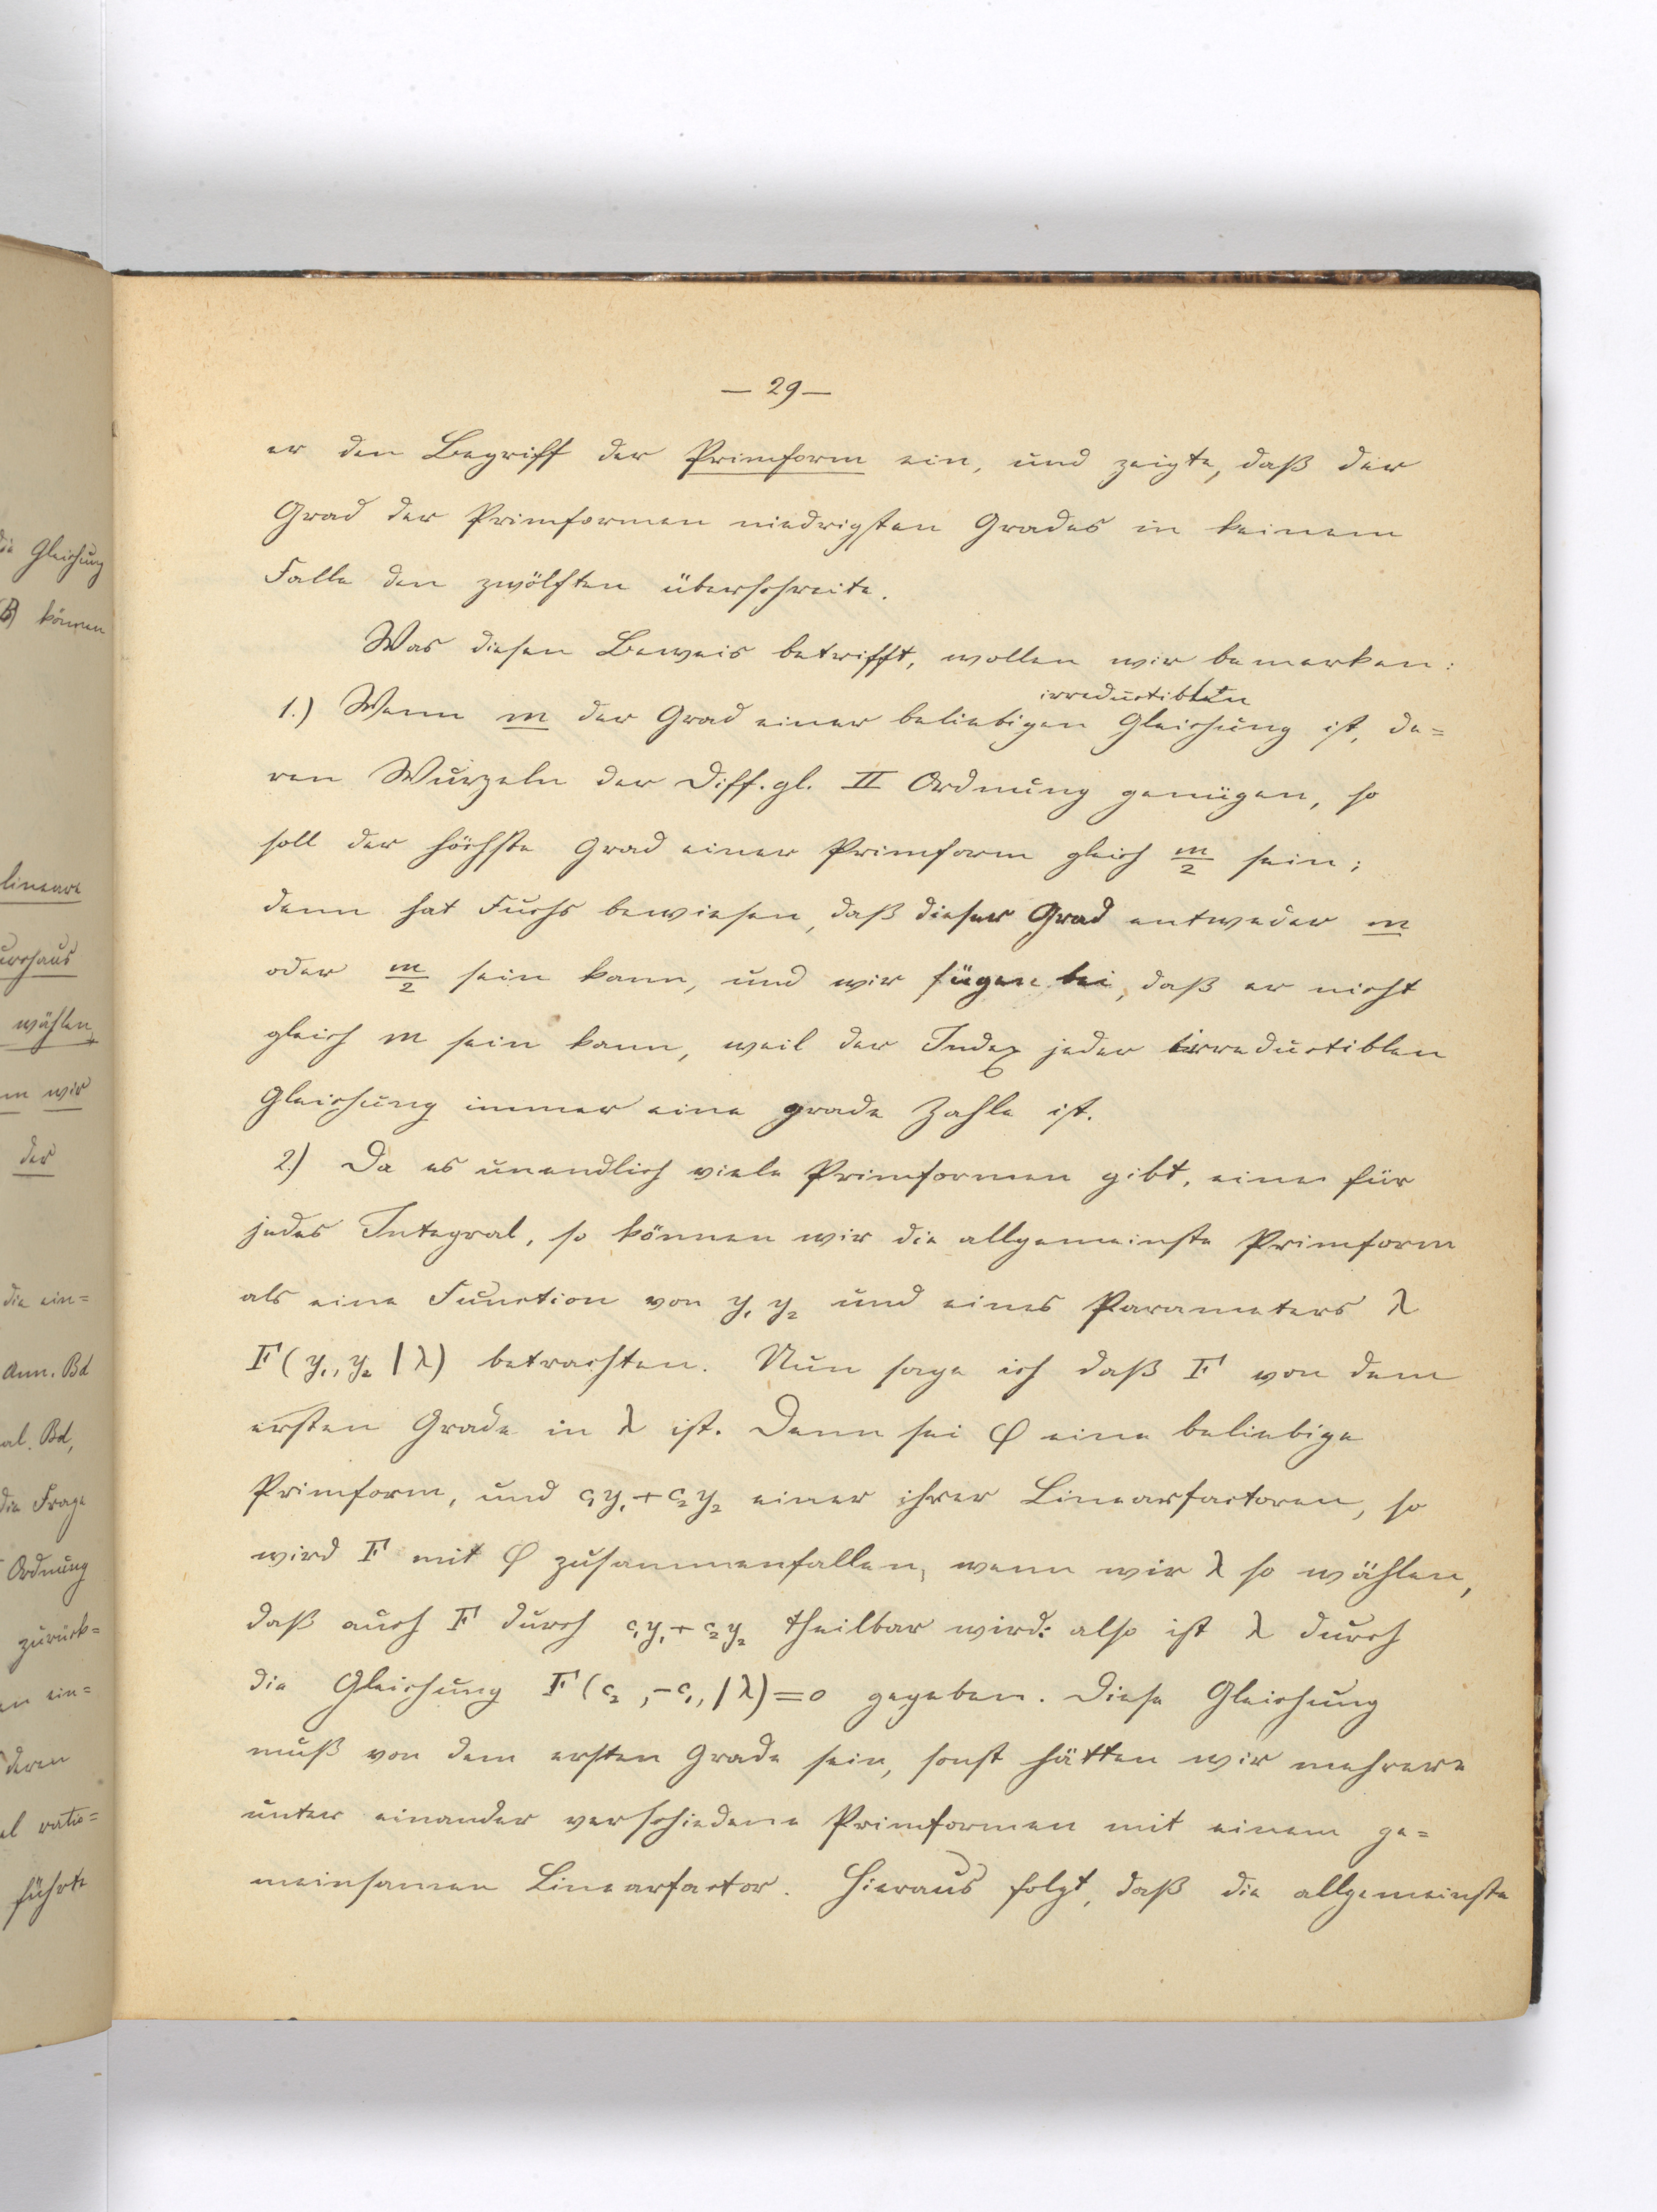 die Gleichung
B) können
lineare
durchaus
wählen,
wir
der
die ein=
Ann. Bd
Bd,
die Frage
Ordnung
zurück=
ein=
deren
ratio=
führte
— 29 —
er den Begriff der Primform ein, und zeigte, daß der
Grad der Primformen niedrigsten Grades in keinem
Falle den zwölften überschreite.
Was diesen Beweis betrifft, wollen wir bemerken:
irreductiblen
1.) Wenn m der Grad einer beliebigen Gleichung ist, de=
ren Wurzeln der Diff. gl. II Ordnung genügen, so
soll der höchste Grad einer Primform gleich m/2 sein;
denn hat Fuchs bewiesen, daß dieser Grad entweder m
oder m/2 sein kann, und wir fügen bei, daß er nicht
gleich m sein kann, weil der Index jeder irreductiblen
Gleichung immer eine grade Zahle ist.
2.) Da es unendlich viele Primformen gibt, eine für
jedes Integral, so können wir die allgemeinste Primform
als eine Function von y₁ y₂ und eines Parameters λ
F(y₁, y₂ | λ) betrachten. Nun sage ich daß F von dem
ersten Grade in λ ist. Denn sei φ eine beliebige
Primform, und c₁y₁ + c₂y₂ einer ihrer Linearfactoren, so
wird F mit φ zusammenfallen, wenn wir λ so wählen,
daß auch F durch c₁y₁ + c₂y₂ theilbar wird: also ist λ durch
die Gleichung F(c₂, -c₁, | λ) = 0 gegeben. Diese Gleichung
muß von dem ersten Grade sein, sonst hätten wir mehrere
unter einander verschiedene Primformen mit einem ge=
meinsamen Linearfactor. Hieraus folgt, daß die allgemeinste